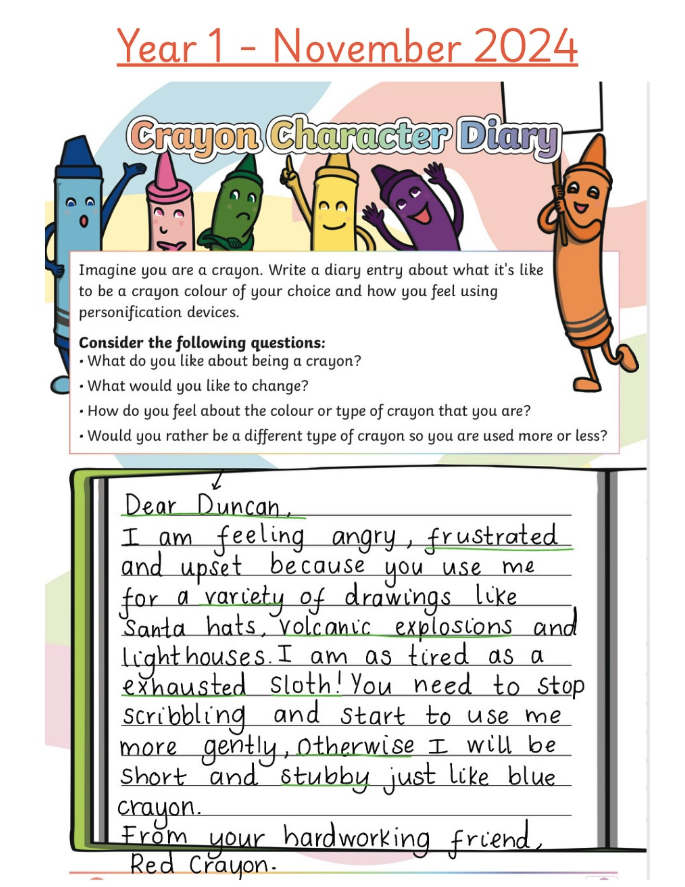 Year 1 - November 2024
Crayon Character Diary
Imagine you are a crayon. Write a diary entry about what it's like
to be a crayon colour of your choice and how you feel using
personification devices.
Consider the following questions:
• What do you like about being a crayon?
• What would you like to change?
• How do you feel about the colour or type of crayon that you are?
• Would you rather be a different type of crayon so you are used more or less?
Dear Duncan,
I am feeling angry, frustrated
and upset because you use me
for a variety of drawings like
Santa hats, volcanic explosions and
lighthouses. I am as tired as a
exhausted sloth! You need to stop
scribbling and start to use me
more gently, otherwise I will be
short and stubby just like blue
crayon.
From your hardworking friend,
Red Crayon.